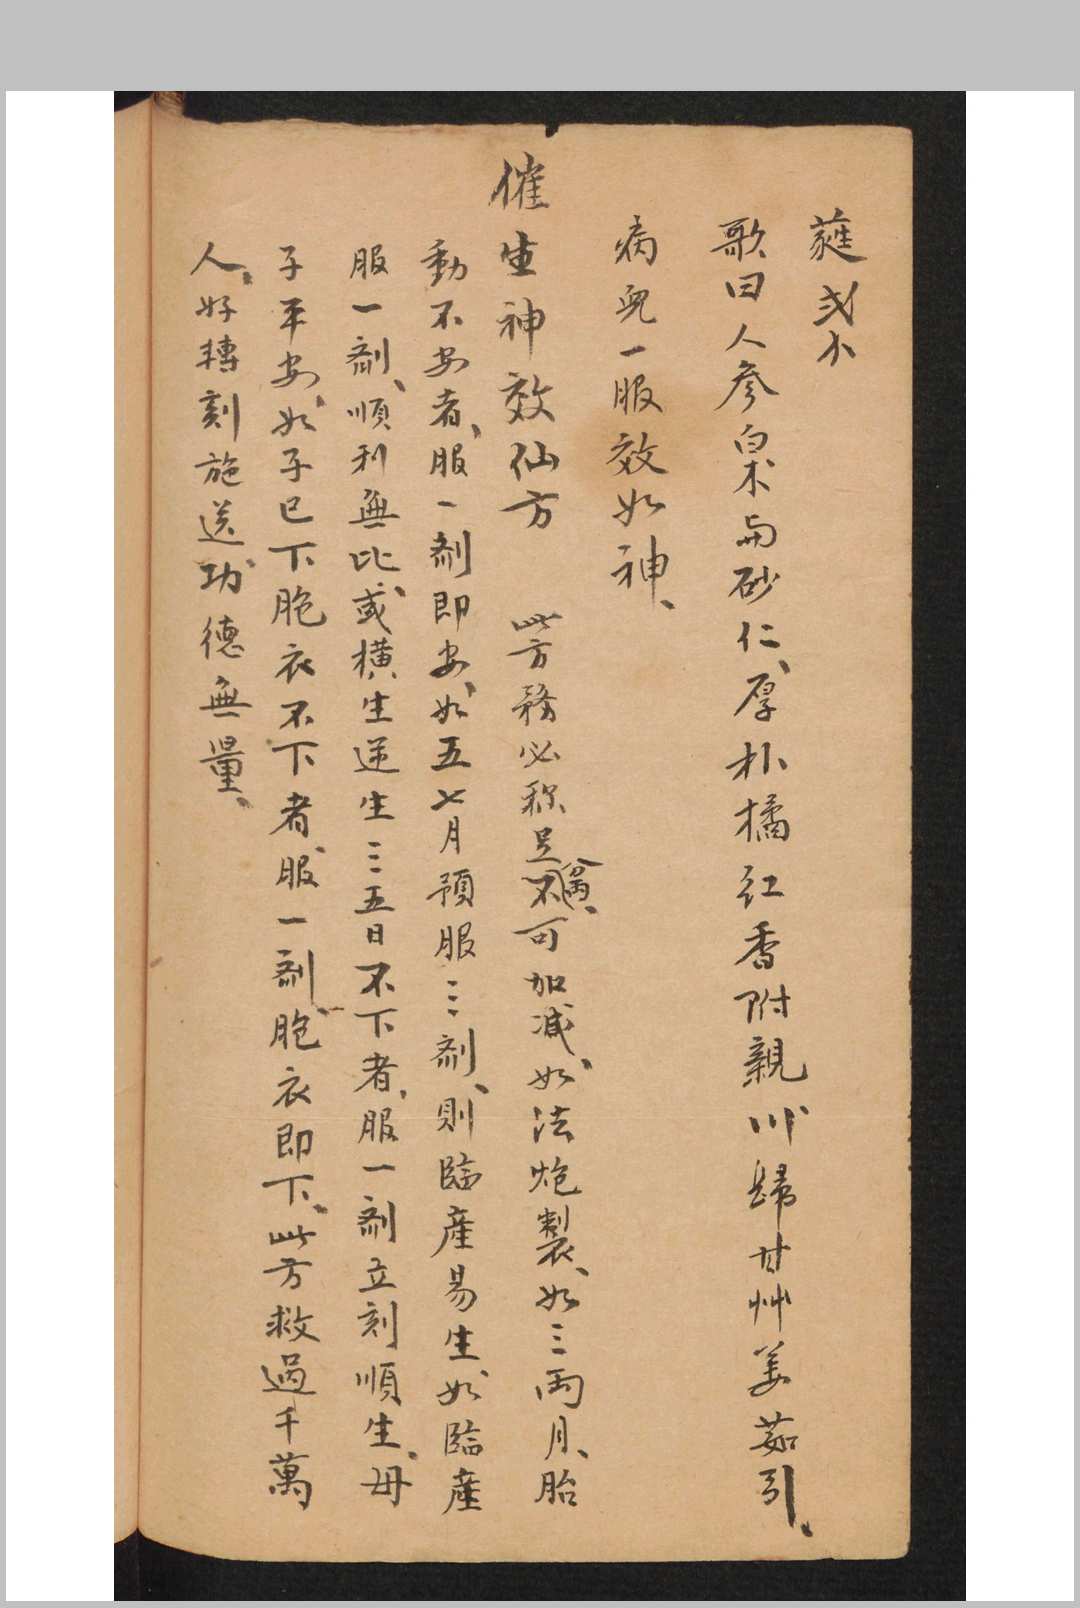 歌曰人參白术與砂仁、厚朴橘紅香附親川歸甘艸姜茹引、
病兒一服效如神、
催生神效仙方 此方務必称足分兩、不可加减、如法炮製、如三兩月、胎
動不安者、服一剤即安、如五七月預服三剤、則臨產易生、如臨產
服一剤、順利無比、或橫生逆生三五日不下者、服一剤立刻順生、母
子平安、如子已下胞衣不下者、服一剤、胞衣即下、此方救過千萬
人、好轉刻施送、功德無量、